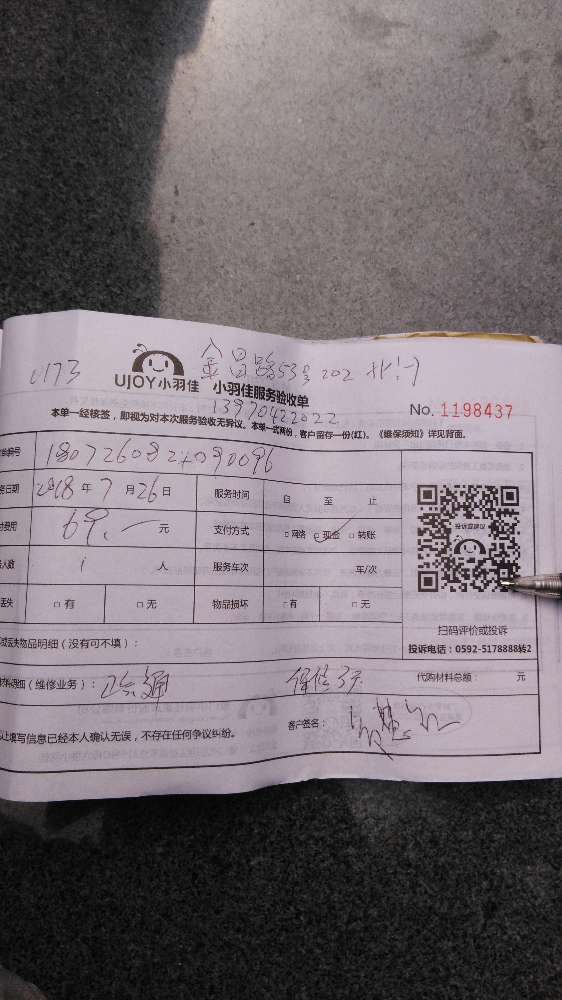 0173 金昌路53号202 北门
UJOY小羽佳 小羽佳服务验收单
13970422022
No. 1198437
本单一经核签，即视为对本次服务验收无异议。本单一式两份，客户留存一份(红)。《维保须知》详见背面。
编号
日期 2018 年 7 月 26 日 服务时间 自 至 止
费用 69. 元 支付方式 □ 网络 □ 现金 □ 转账
人数 1 人 服务车次 车/次
丢失 □ 有 □ 无 物品损坏 □ 有 □ 无
投诉或建议
扫码评价或投诉
投诉电话：0592-5178888转2
丢失物品明细（没有可不填）：
明细（维修业务）： 通 保修3天 代购材料总额： 元
以上填写信息已经本人确认无误，不存在任何争议纠纷。 客户签名：